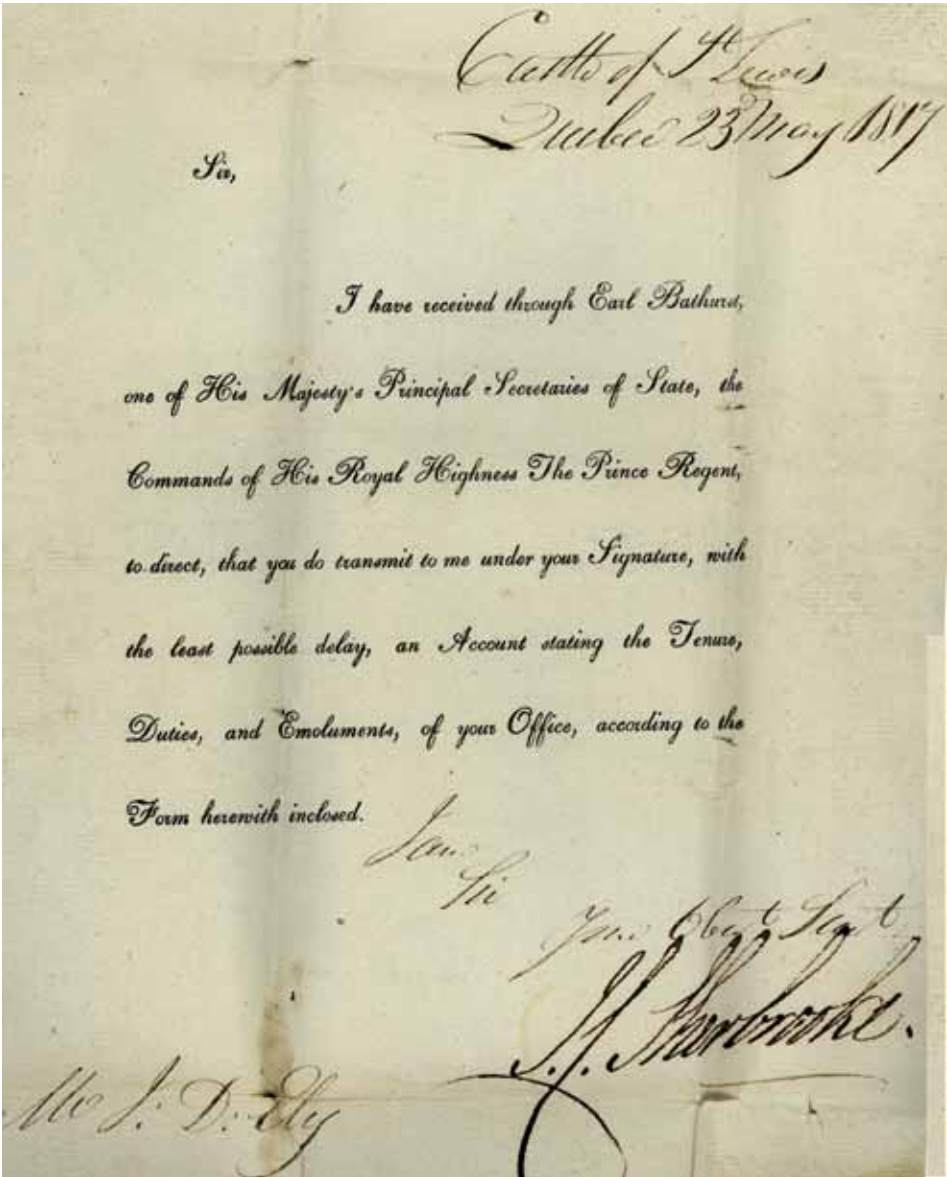 Castle of St Lewis
Quebec 23 May 1817
Sir,
I have received through Earl Bathurst,
one of His Majesty's Principal Secretaries of State, the
Commands of His Royal Highness The Prince Regent,
to direct, that you do transmit to me under your Signature, with
the least possible delay, an Account stating the Tenure,
Duties, and Emoluments, of your Office, according to the
Form herewith inclosed.
I am
Sir
Your Obent Servt
J.C. Sherbrooke.
Mr J. D. Ely